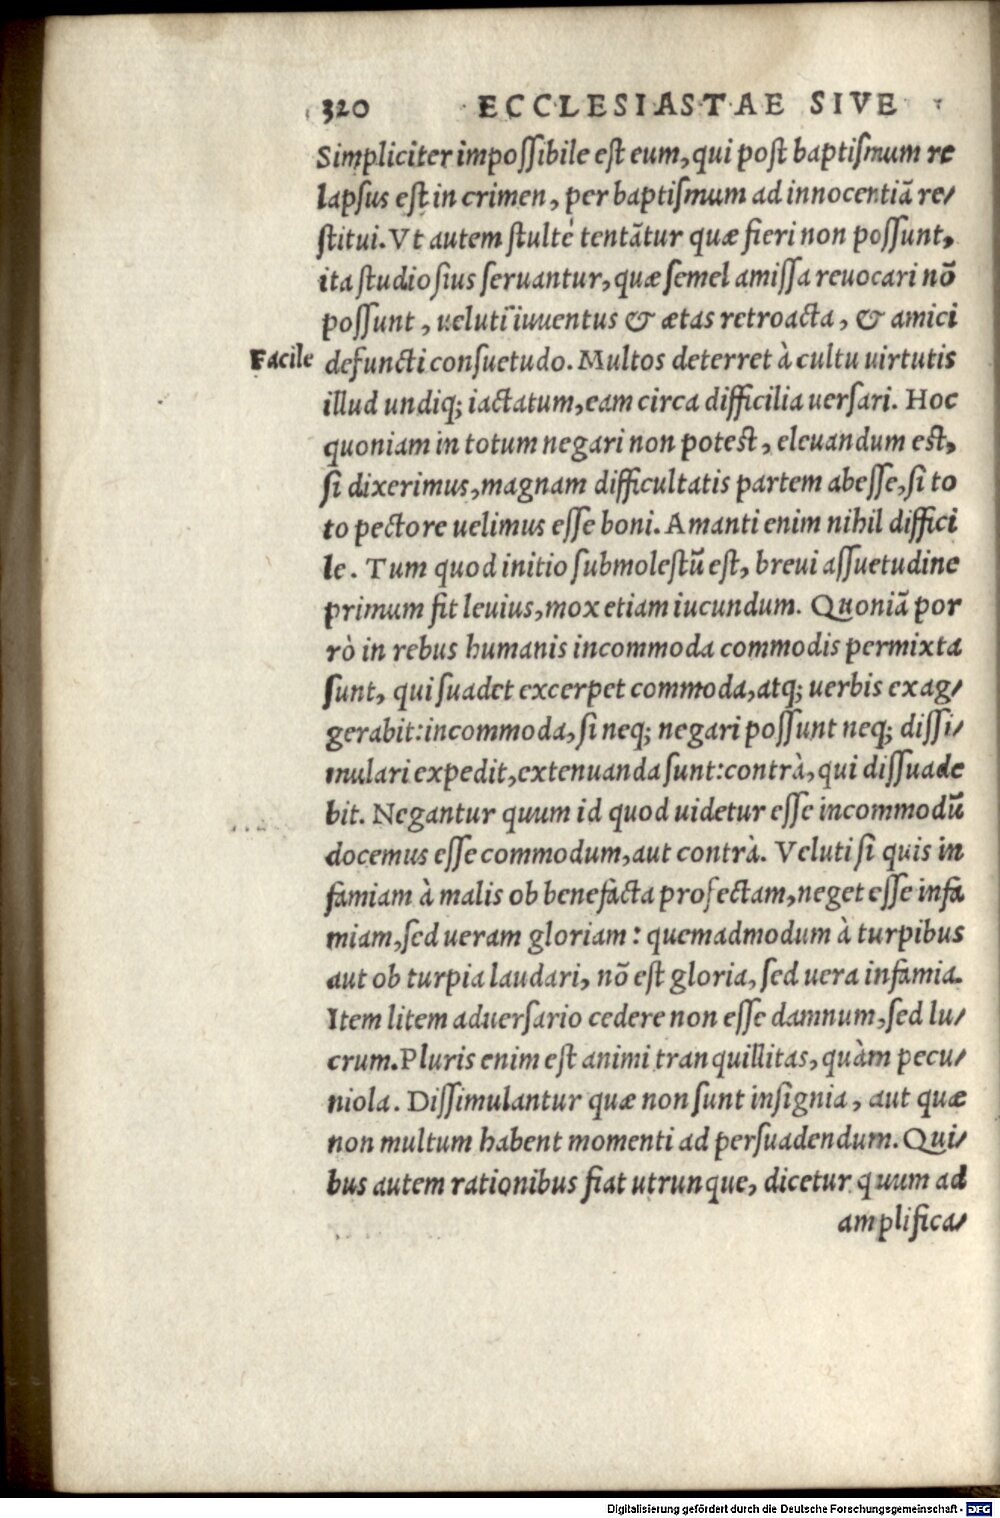 320 ECCLESIASTAE SIVE
Simpliciter impossibile est eum, qui post baptismum re
lapsus est in crimen, per baptismum ad innocentiã re/
stitui. Vt autem stultè tentãtur quæ fieri non possunt,
ita studiosius seruantur, quæ semel amissa reuocari nõ
possunt, ueluti iuuentus & ætas retroacta, & amici
Facile defuncti consuetudo. Multos deterret à cultu uirtutis
illud undiq; iactatum, eam circa difficilia uersari. Hoc
quoniam in totum negari non potest, eleuandum est,
si dixerimus, magnam difficultatis partem abesse, si to
to pectore uelimus esse boni. Amanti enim nihil diffici
le. Tum quod initio submolestũ est, breui assuetudine
primum fit leuius, mox etiam iucundum. Quoniã por
rò in rebus humanis incommoda commodis permixta
sunt, qui suadet excerpet commoda, atq; uerbis exag/
gerabit: incommoda, si neq; negari possunt neq; dissi/
mulari expedit, extenuanda sunt: contrà, qui dissuade
bit. Negantur quum id quod uidetur esse incommodũ
docemus esse commodum, aut contrà. Veluti si quis in
famiam à malis ob benefacta profectam, neget esse infa
miam, sed ueram gloriam: quemadmodum à turpibus
aut ob turpia laudari, nõ est gloria, sed uera infamia.
Item litem aduersario cedere non esse damnum, sed lu/
crum. Pluris enim est animi tranquillitas, quàm pecu/
niola. Dissimulantur quæ non sunt insignia, aut quæ
non multum habent momenti ad persuadendum. Qui/
bus autem rationibus fiat utrunque, dicetur quum ad
amplifica/
Digitalisierung gefördert durch die Deutsche Forschungsgemeinschaft - DFG